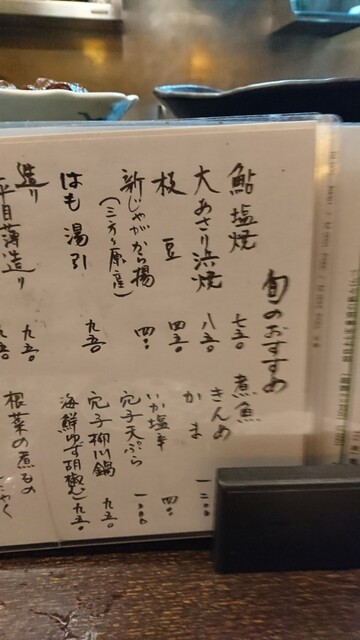 旬のおすすめ
鮎塩焼 七五〇
大あさり浜焼 八五〇
枝豆 四五〇
新じゃがから揚 四〇〇
(三方ヶ原産)
はも湯引 九五〇
造り 九五〇
平目薄造り
煮魚
きんめ
かま 一二〇〇
いか塩辛 四〇〇
穴子天ぷら 一二〇〇
穴子柳川鍋 九五〇
海鮮ゆず胡椒 九五〇
根菜の煮もの